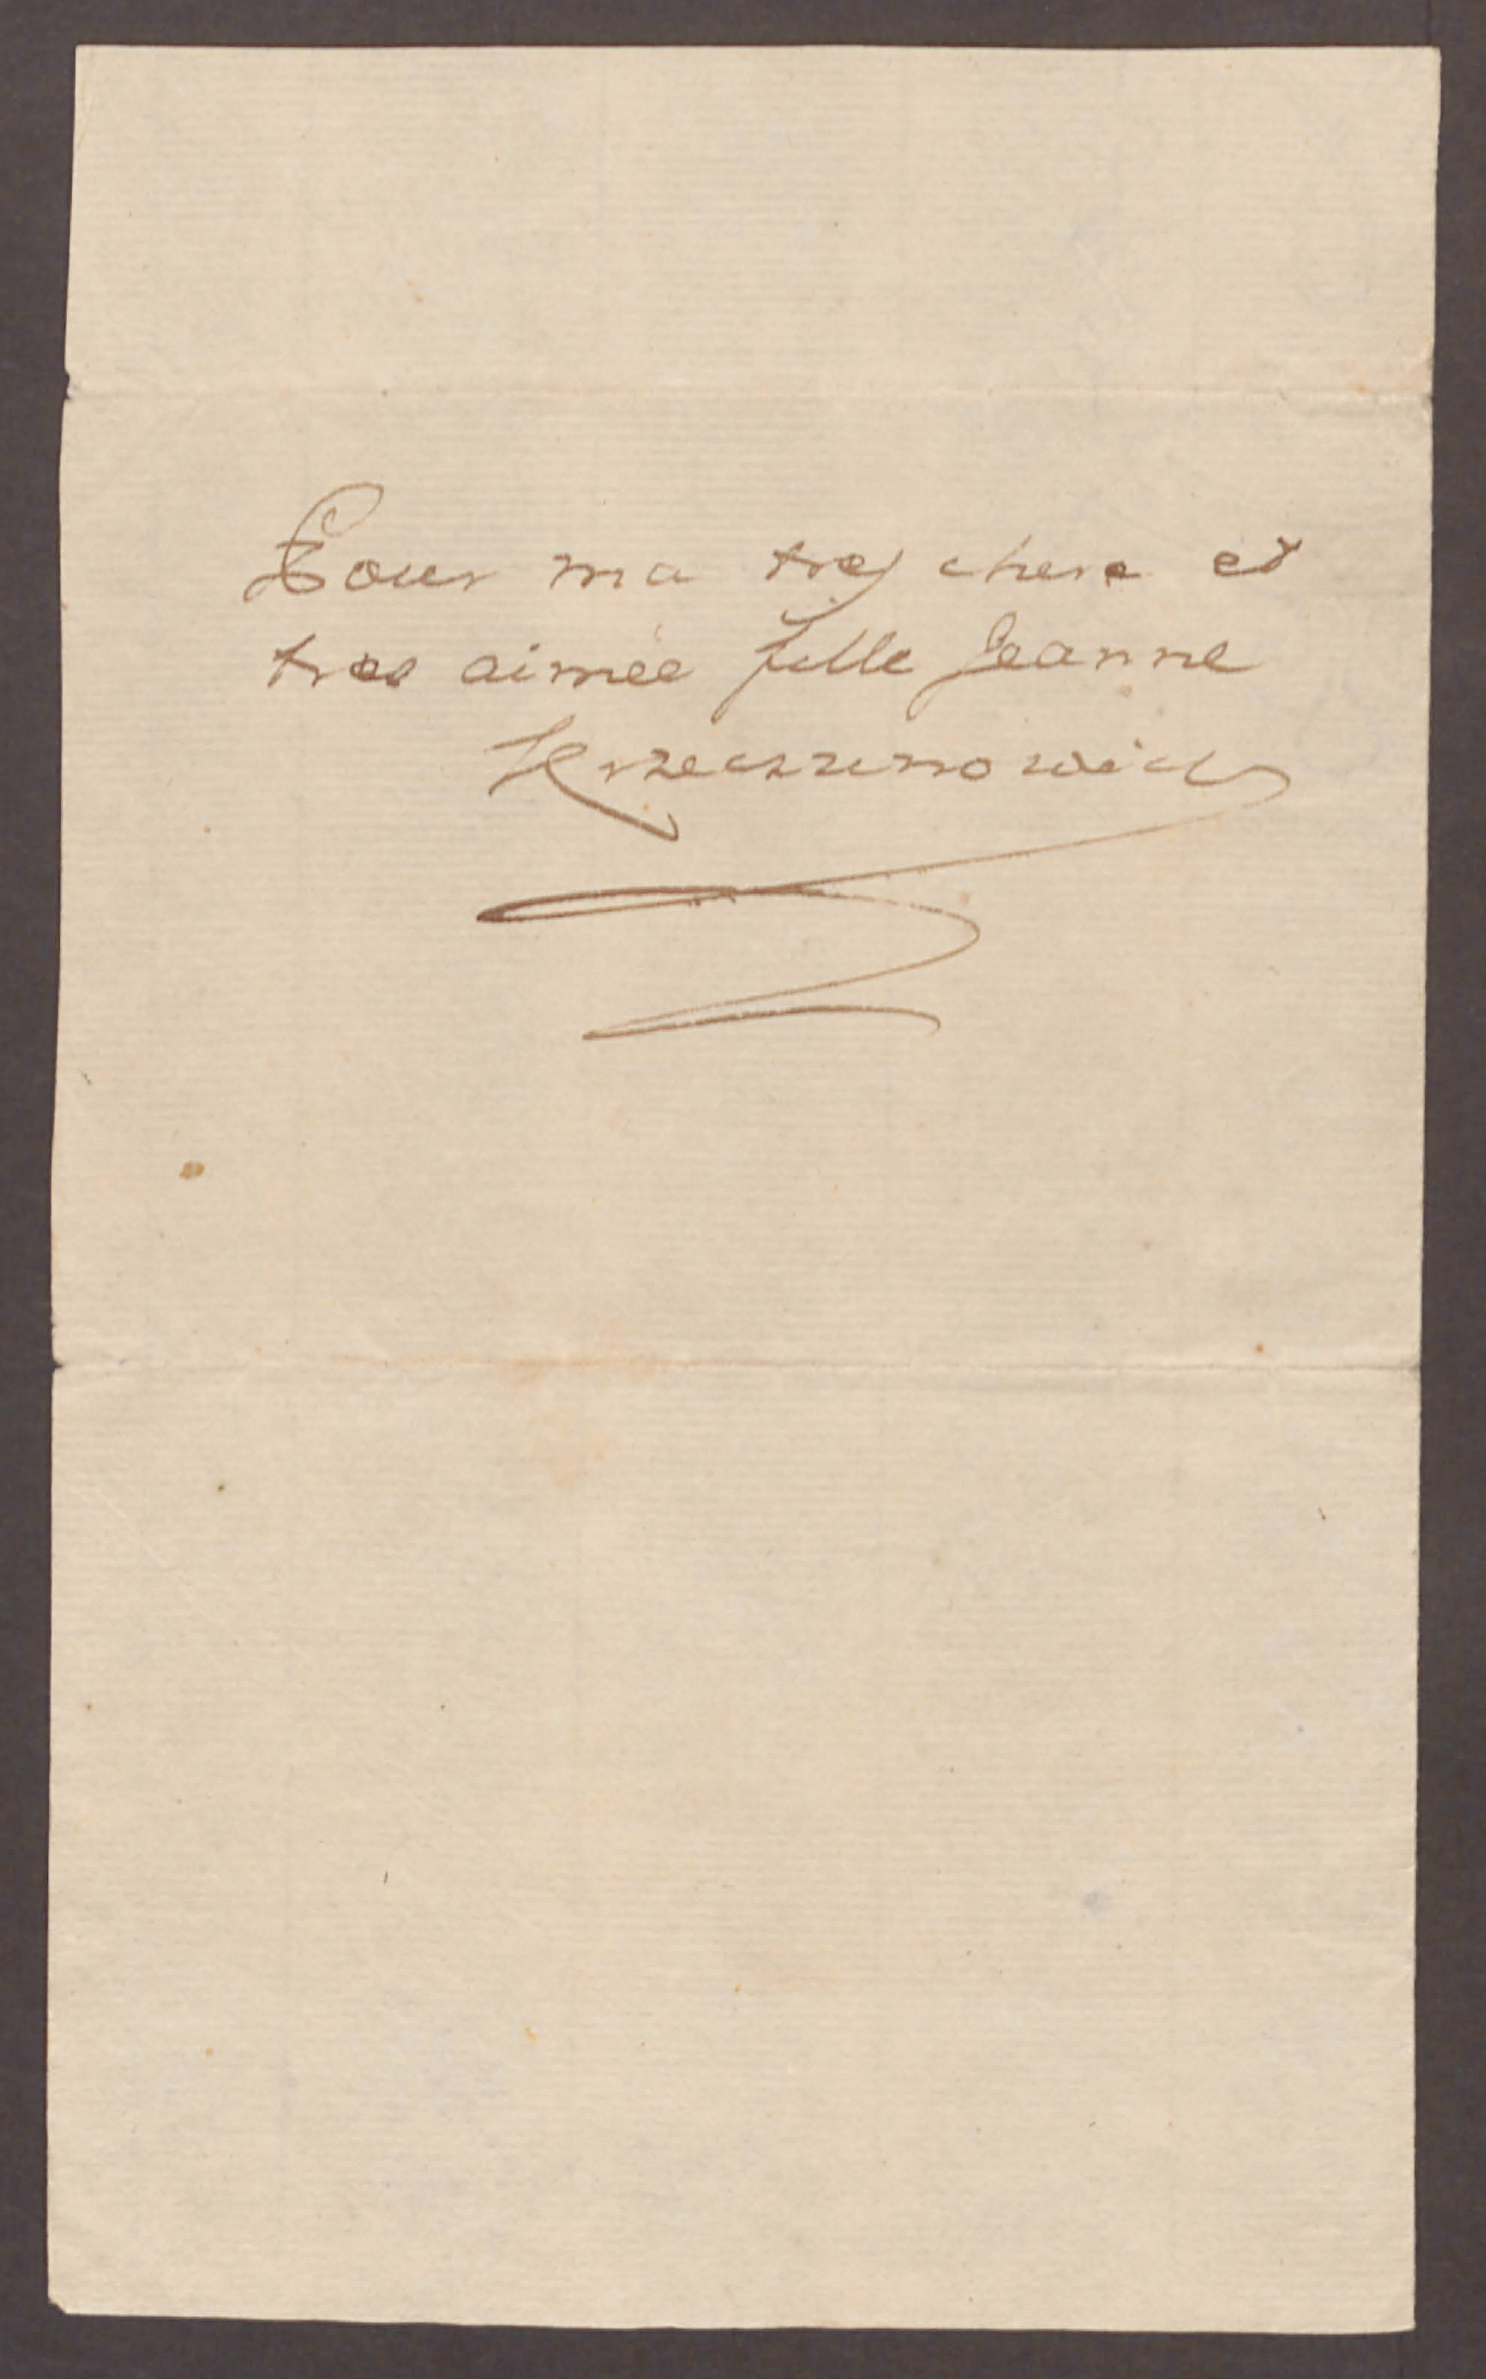 Pour ma tres chere et
tres aimée fille Jeanne
Krzeczunowicz